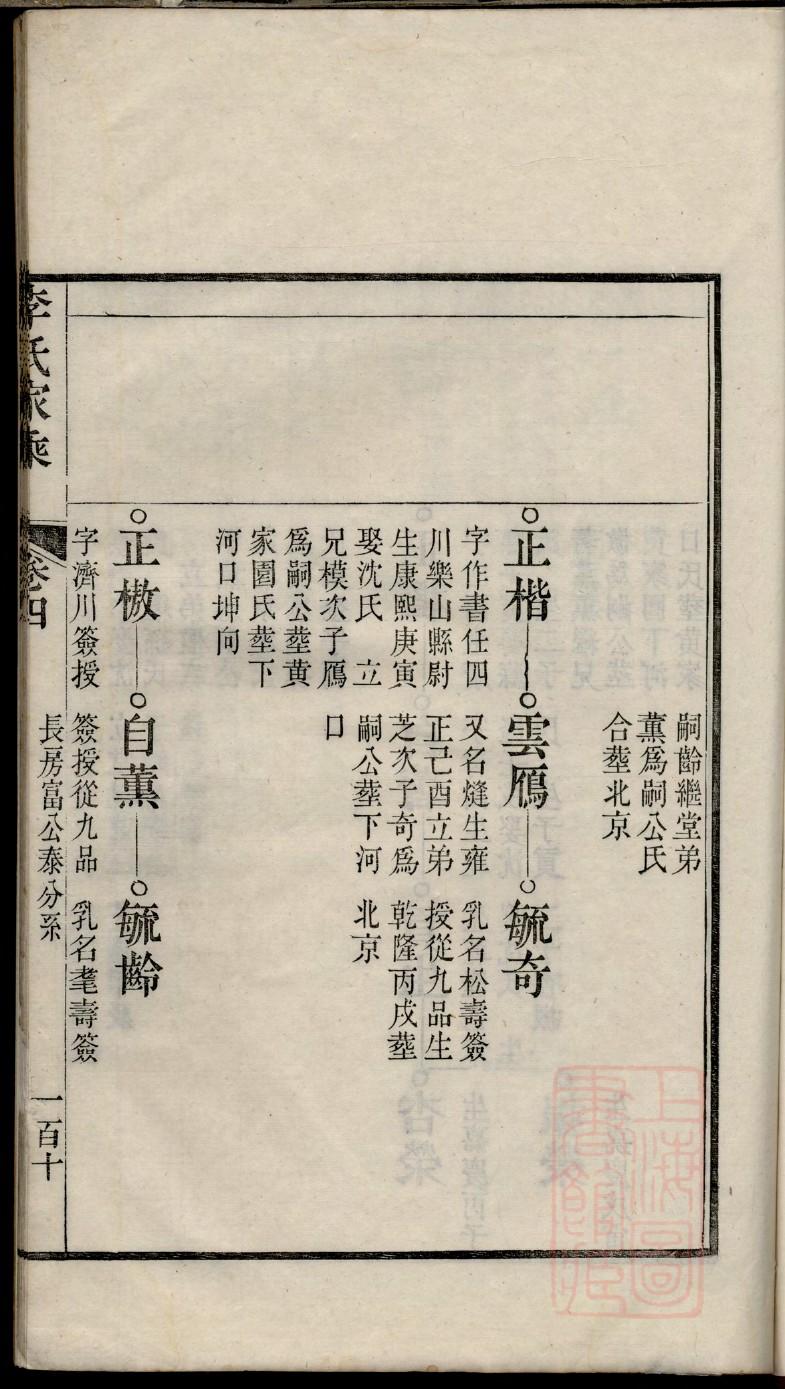 嗣齡繼堂弟
薰爲嗣公氏
合塟北京
○正楷
字作書任四
川樂山縣尉
生康熙庚寅
娶沈氏　立
兄模次子鴈
爲嗣公塟黄
家園氏塟下
河口坤向
○雲鴈
又名燵生雍
正己酉立弟
芝次子奇爲
嗣公塟下河
口
○毓奇
乳名松壽簽
授從九品生
乾隆丙戌塟
北京
○正檄
字濟川簽授
○自薰
簽授從九品
○毓齡
乳名耄壽簽
李氏家乘
卷四
長房富公泰分系
一百十
上海圖書館藏